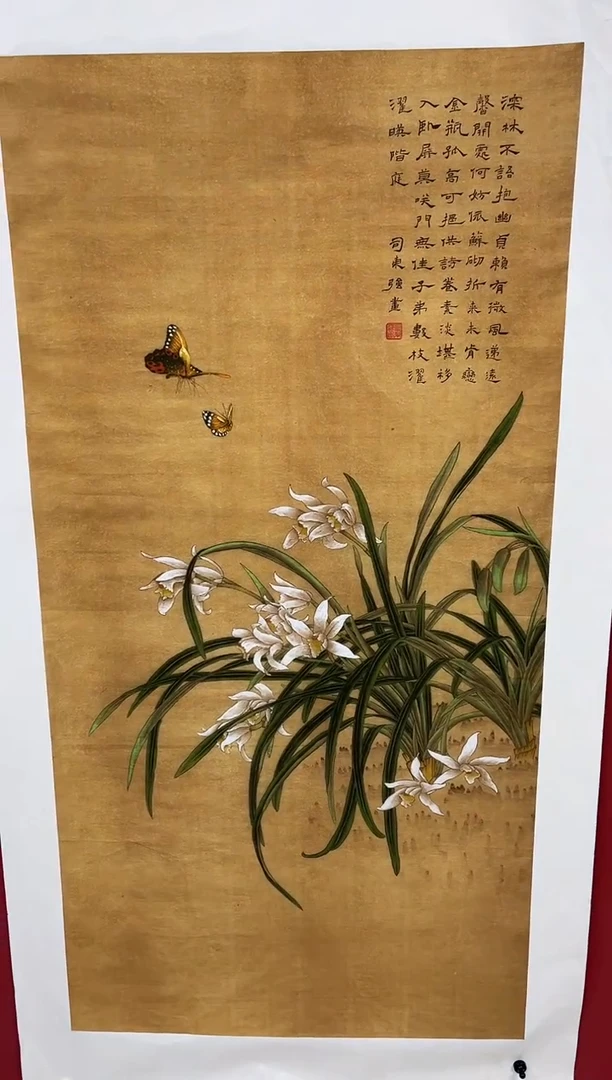 深林不語抱幽貞賴有微風遞遠
馨開處何妨依蘚砌折来未肯戀
金瓶孤高可挹供詩卷素淡堪移
入卧屏莫咲門無佳子弟數枝濯
濯暎階庭 司東強畫